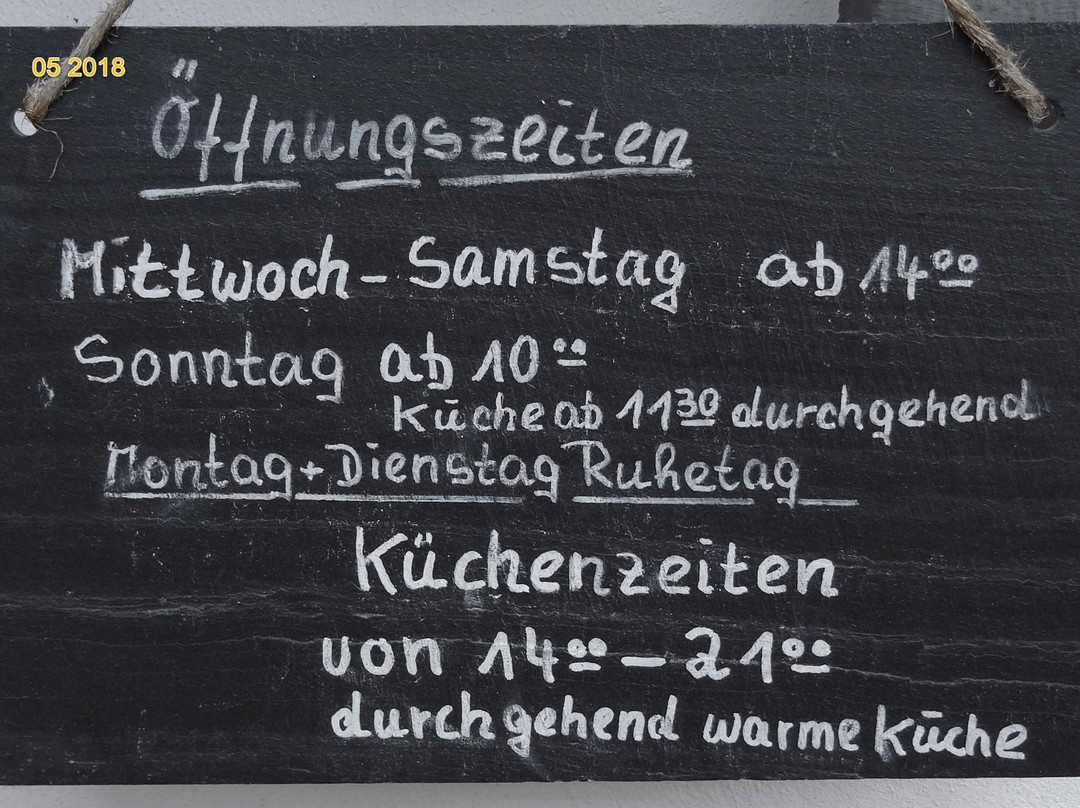 05 2018
Öffnungszeiten
Mittwoch - Samstag ab 14⁰⁰
Sonntag ab 10⁰⁰
Küche ab 11³⁰ durchgehend
Montag + Dienstag Ruhetag
Küchenzeiten
von 14⁰⁰ - 21⁰⁰
durchgehend warme Küche